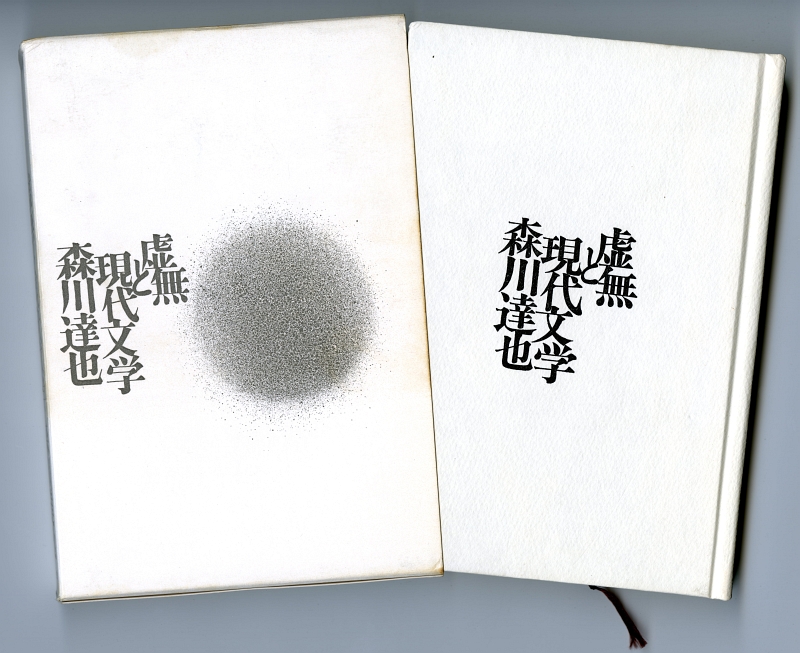 虚無
と
現代文学
森川達也
虚無
と
現代文学
森川達也